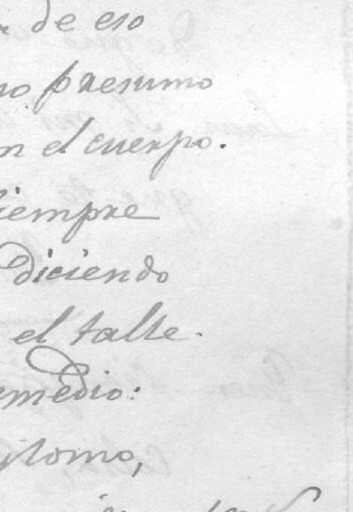 de eso
no presumo
n el cuerpo.
siempre
diciendo
el talle.
emedio:
y tomo,